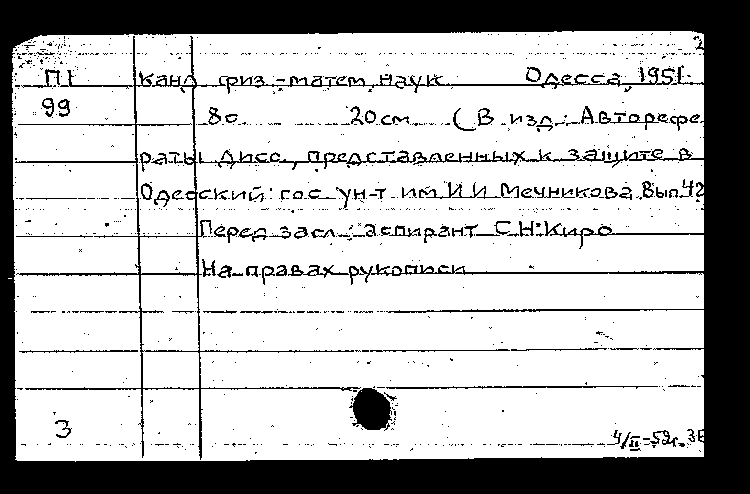 2
П1 Канд физ.-матем. наук Одесса, 1951.
99 8с. 20см. (В изд.: Авторефе
раты дисс., представленных к защите в
Одесский гос ун-т им. И И Мечникова. Вып. 42
Перед загл.: аспирант С.Н. Киро
На правах рукописи
3
4/II-59г. ЗЕ